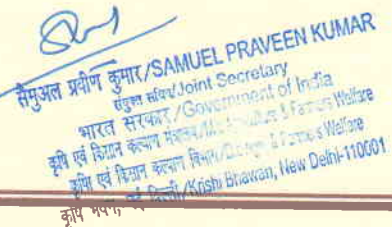 सैमुअल प्रवीण कुमार/SAMUEL PRAVEEN KUMAR
संयुक्त सचिव/Joint Secretary
भारत सरकार/Government of India
कृषि एवं किसान कल्याण & Farmers Welfare
कृषि एवं किसान कल्याण विभाग & Farmers Welfare
कृषि भवन, नई दिल्ली/Krishi Bhawan, New Delhi-110001